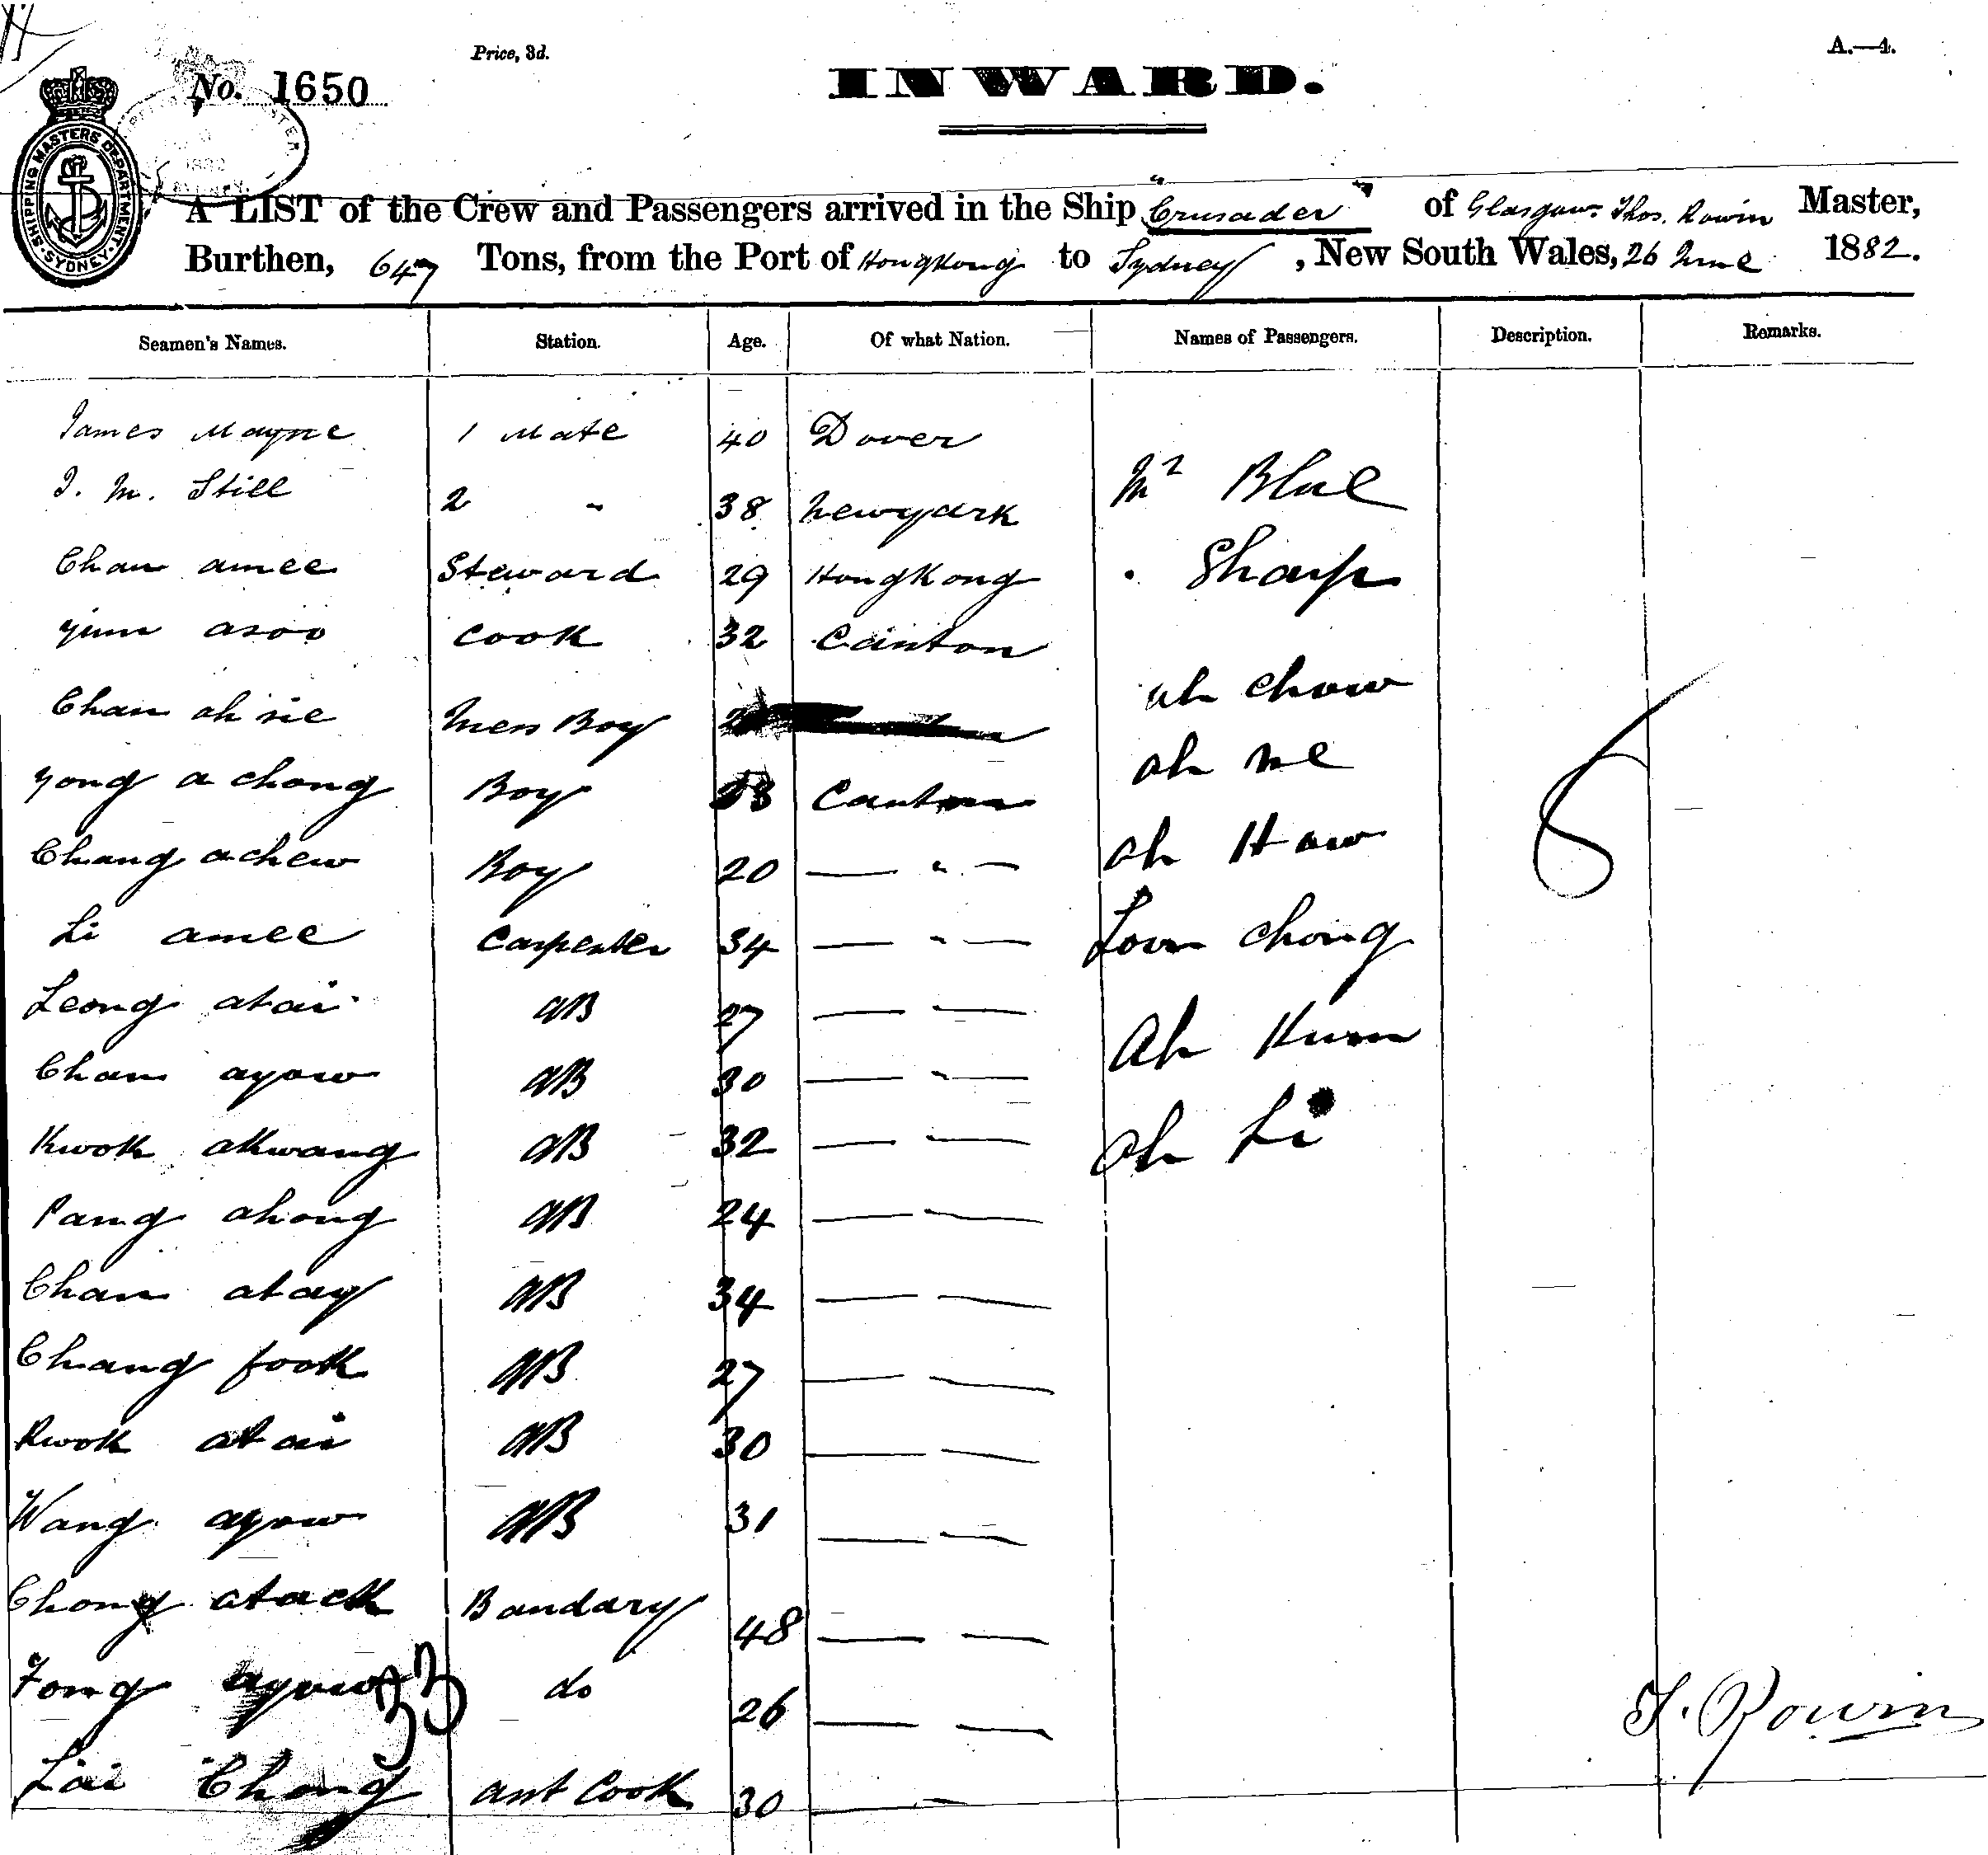 Price, 3d.
A.—4.
No. 1650
INWARD.
SHIPPING MASTERS DEPARTMENT. SYDNEY.
A LIST of the Crew and Passengers arrived in the Ship "Crusader" of Glasgow Thos. Rowin Master,
Burthen, 647 Tons, from the Port of HongKong to Sydney, New South Wales, 26 June 1882.
Seamen's Names. Station. Age. Of what Nation. Names of Passengers. Description. Remarks.
James Mayne 1 Mate 40 Dover
J. M. Still 2 " 38 Newyark Mr Blue
Chan amee Steward 29 HongKong . Sharp
yim asoo Cook 32 Canton
Chan ah sie Mess Boy ah Chow
yong a chong Boy 23 Canton ah ne
Chang achew Boy 20 — " — ah Haw
Li amee Carpenter 34 — " — Loun Chong
Leong atai AB 27 — —
Chan ayow AB 30 — — Ah Kum
Kwok akwang AB 32 — — ah Li
Pang ahong AB 24 — —
Chan atay AB 34 — —
Chang fook AB 27 — —
Kwok atai AB 30 — —
Wang ayow AB 31 — —
Chong atack Bandary 48 — —
Fong ayow 33 do 26 — —
T. Rowin
Lai Chong ast Cook 30 — —